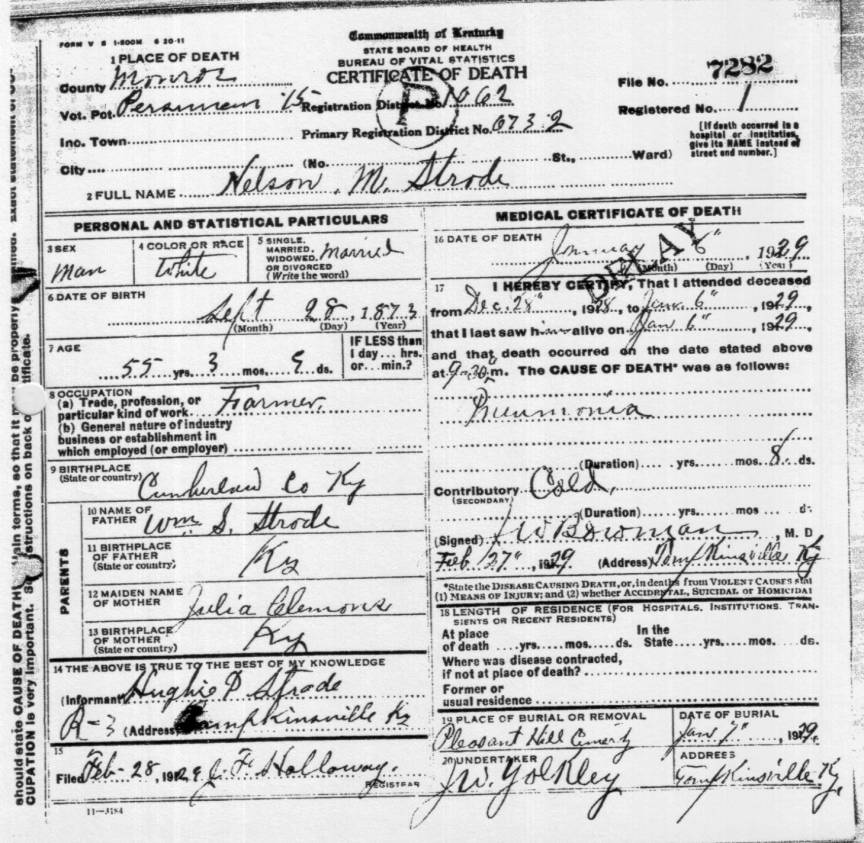 FORM V S 1-500M 6 20-11
Commonwealth of Kentucky
STATE BOARD OF HEALTH
BUREAU OF VITAL STATISTICS
CERTIFICATE OF DEATH
1 PLACE OF DEATH
County Monroe
Vot. Pct. 15
Inc. Town
City
P
Registration District No. 1062
Primary Registration District No. 6732
File No. 7282
Registered No. 1
[If death occurred in a
hospital or institution,
give its NAME instead of
street and number.]
(No. St., Ward)
2 FULL NAME Nelson . M. Strode
PERSONAL AND STATISTICAL PARTICULARS
3 SEX
Man
4 COLOR OR RACE
White
5 SINGLE,
MARRIED,
WIDOWED,
OR DIVORCED
(Write the word)
Married
6 DATE OF BIRTH
Sept 28, 1873
(Month) (Day) (Year)
7 AGE
55 yrs. 3 mos. 9 ds.
IF LESS than
1 day... hrs.
or... min.?
8 OCCUPATION
(a) Trade, profession, or
particular kind of work Farmer.
(b) General nature of industry
business or establishment in
which employed (or employer)
9 BIRTHPLACE
(State or country)
Cumberland Co Ky
PARENTS
10 NAME OF
FATHER Wm. S. Strode
11 BIRTHPLACE
OF FATHER
(State or country)
Ky
12 MAIDEN NAME
OF MOTHER Julia Clemons
13 BIRTHPLACE
OF MOTHER
(State or country)
Ky
14 THE ABOVE IS TRUE TO THE BEST OF MY KNOWLEDGE
(Informant Hughie P Strode
R-3 (Address Tompkinsville Ky
15
Filed Feb-28, 1929 J. F. Holloway.
REGISTRAR
11—3184
MEDICAL CERTIFICATE OF DEATH
16 DATE OF DEATH
January 6", 1929
(Month) (Day) (Year)
DELAY
17 I HEREBY CERTIFY, That I attended deceased
from Dec. 28", 1928, to Jan. 6", 1929,
that I last saw him alive on Jan 6", 1929,
and that death occurred on the date stated above
at 9-30 m. The CAUSE OF DEATH* was as follows:
Pneumonia
(Duration) yrs. mos. 8 ds.
Contributory Cold,
(SECONDARY)
(Duration) yrs. mos. ds.
(Signed) W Bowman, M. D
Feb 27", 1929 (Address) Tompkinsville Ky
*State the DISEASE CAUSING DEATH, or, in deaths from VIOLENT CAUSES stat
(1) MEANS OF INJURY; and (2) whether ACCIDENTAL, SUICIDAL or HOMICIDAL
18 LENGTH OF RESIDENCE (FOR HOSPITALS, INSTITUTIONS, TRAN-
SIENTS OR RECENT RESIDENTS)
At place In the
of death yrs. mos. ds. State yrs. mos. ds.
Where was disease contracted,
if not at place of death?
Former or
usual residence
19 PLACE OF BURIAL OR REMOVAL
Pleasant Hill
DATE OF BURIAL
Jan 7", 1929.
20 UNDERTAKER
J.W. Yokley
ADDRESS
Tompkinsville Ky.
should state CAUSE OF DEATH in plain terms, so that it may be properly
CUPATION is very important. See instructions on back of certificate.